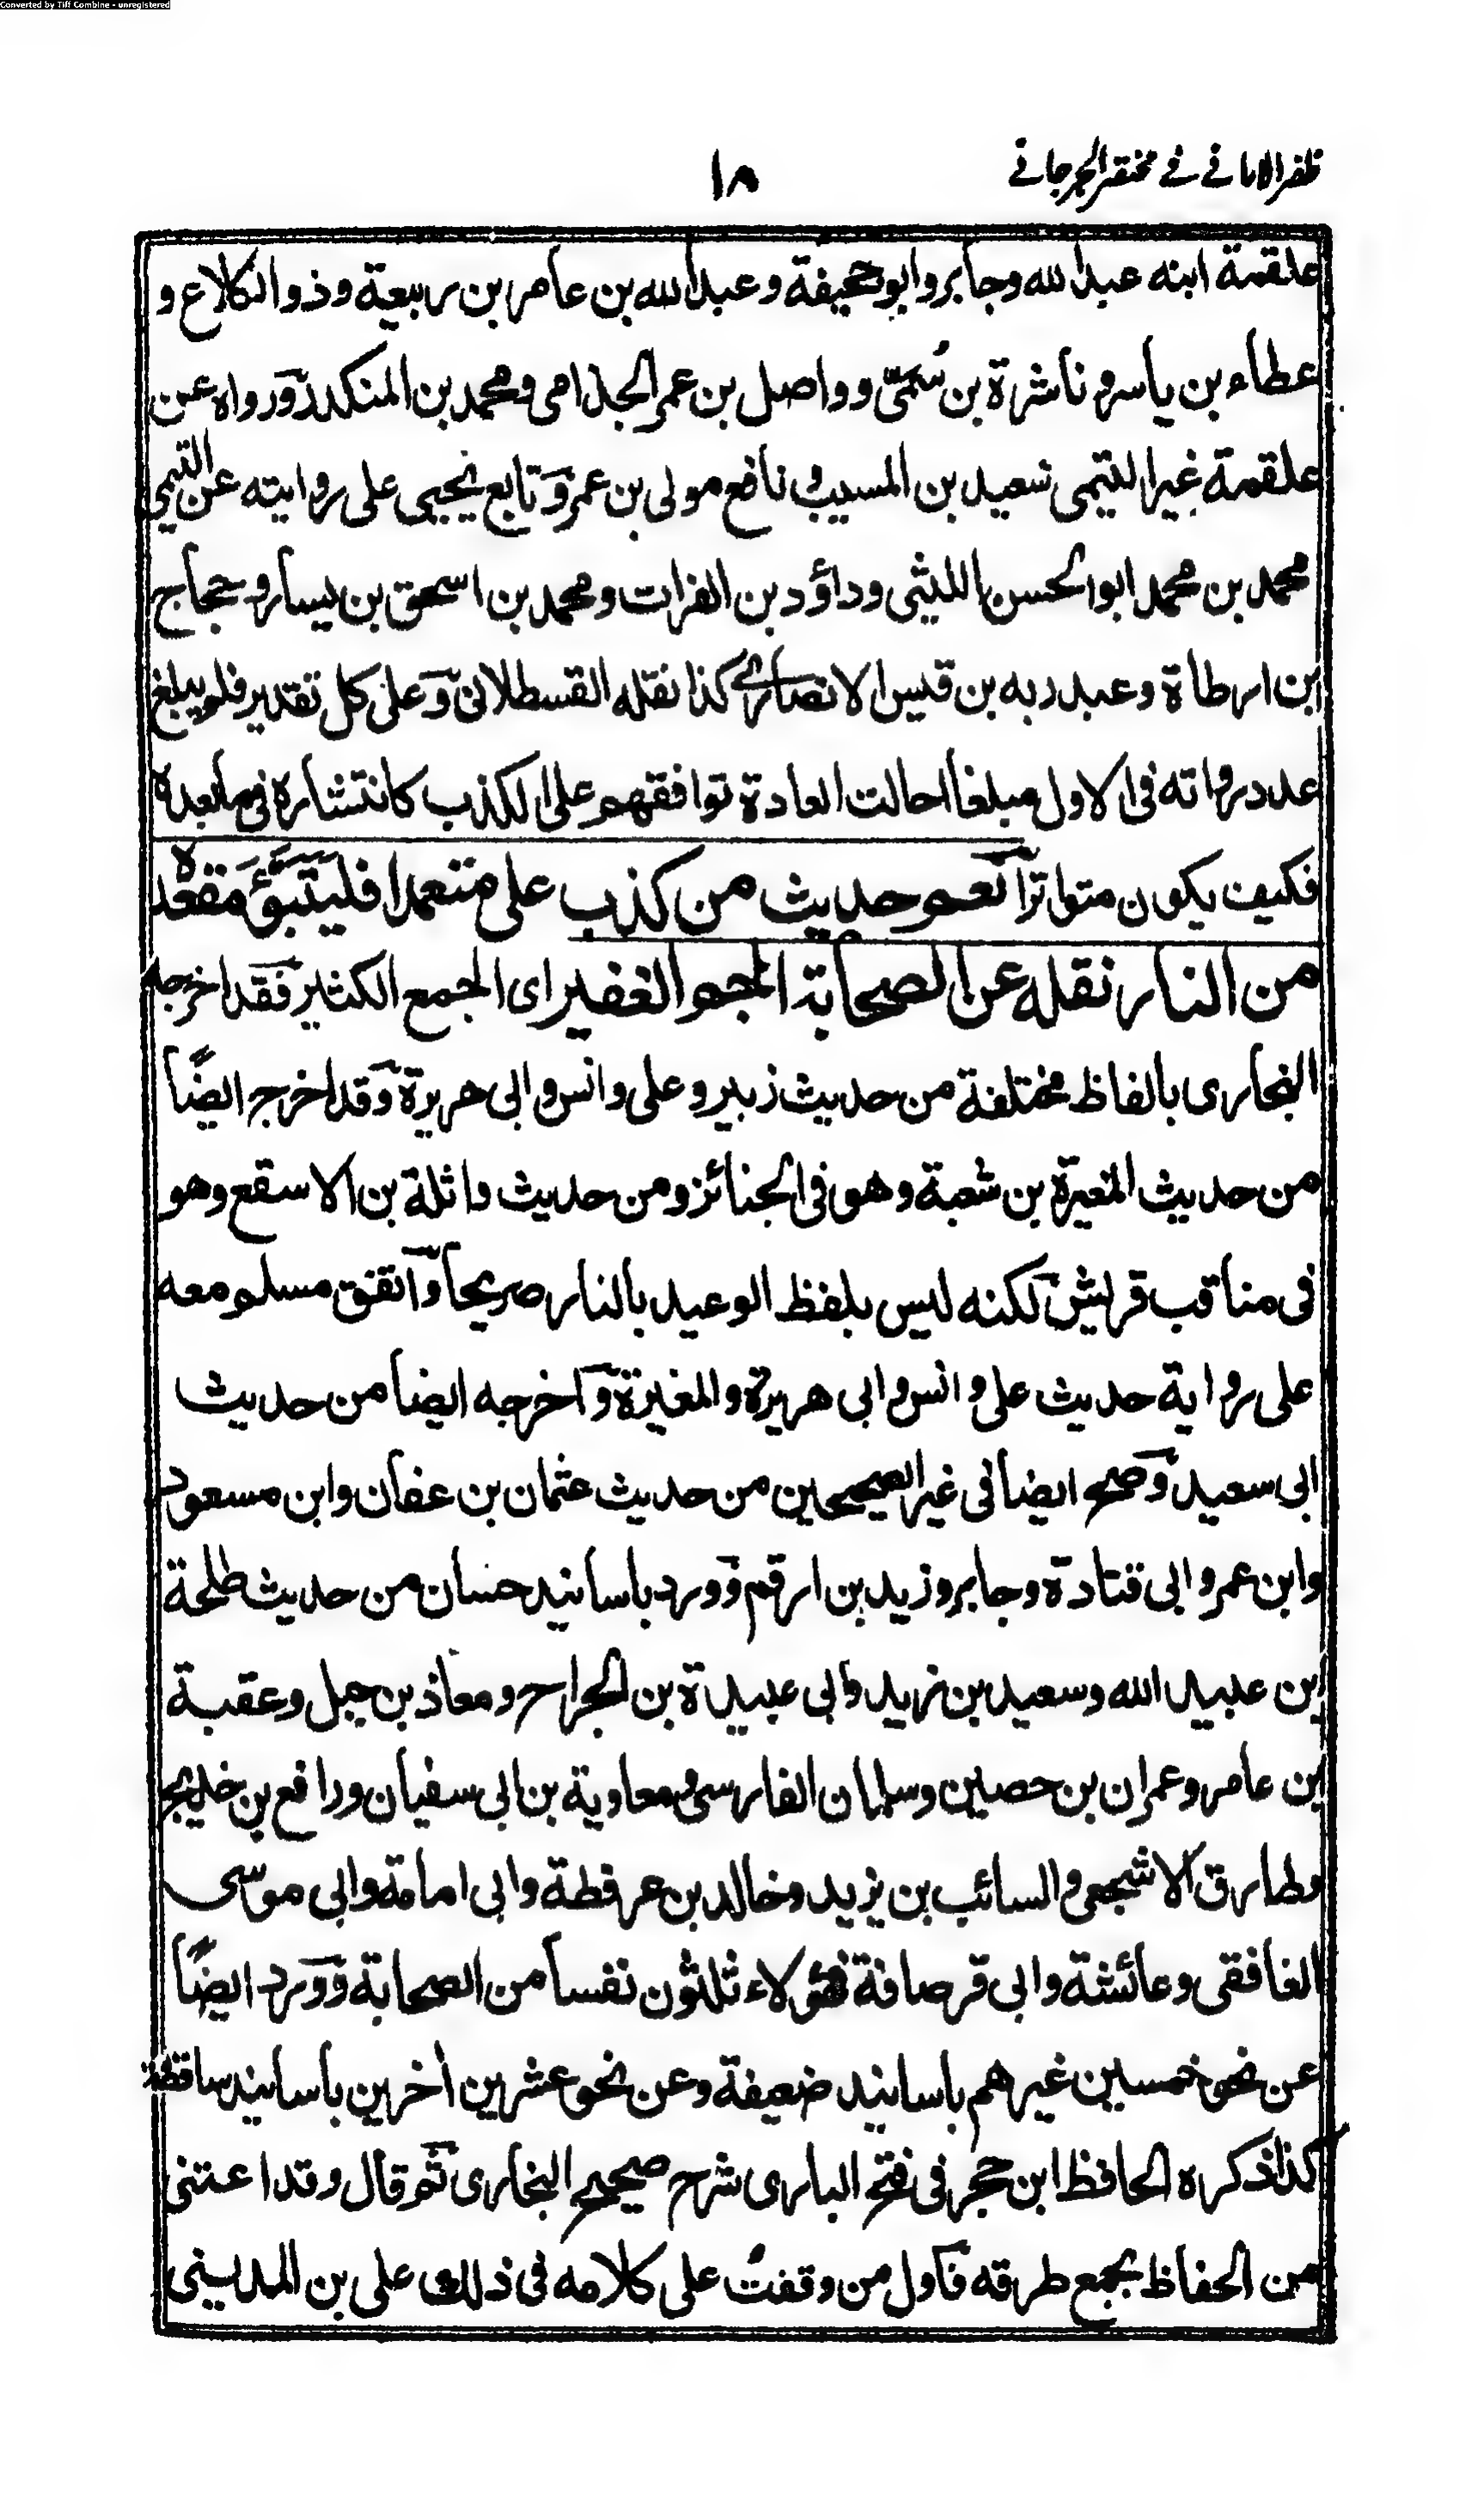 Converted by Tiff Combine - unregistered
ظفر الامانے فے مختصر الجرجانے
١٨
علقمة ابنه عبد الله وجابر وابو جحيفة وعبد الله بن عامر بن ربيعة وذو الكلاع و
عطاء بن ياسر وناشرة بن سُمَىّ وواصل بن عمر الجذامى ومحمد بن المنكدر ورواه عن
علقمة غير التيمى سعيد بن المسيب ونافع مولى بن عمر وتابع يحيى على روايته عن التيمي
محمد بن محمد ابو الحسن الليثى وداؤد بن الفرات ومحمد بن اسحق بن يسار وحجاج
بن ارطاة وعبد ربه بن قيس الانصارے كذا نقله القسطلانى وعلى كل تقدير فلم يبلغ
عدد رواته فى الاول مبلغا احالت العادة توافقهم على الكذب كانتشاره فى مابعده
فكيف يكون متواترا نعم حديث من كذب على متعمدا فليتبوَّئ مقعده
من النار نقله عن الصحابة الجم الغفير اى الجمع الكثير فقد اخرجه
البخارى بالفاظ مختلفة من حديث زبير وعلى وانس وابى هريرة وقد اخرج ايضًا
من حديث المغيرة بن شعبة وهو فى الجنائز ومن حديث واثلة بن الاسقع وهو
فى مناقب قريش لكنه ليس بلفظ الوعيد بالنار صريحا واتفق مسلم معه
على رواية حديث على وانس وابى هريرة والمغيرة واخرجه ايضا من حديث
ابى سعيد وصح ايضا فى غير الصحيحين من حديث عثمان بن عفان وابن مسعود
وابن عمر وابى قتادة وجابر وزيد بن ارقم وورد باسانيد حسان من حديث طلحة
بن عبيد الله وسعيد بن زيد وابى عبيدة بن الجراح ومعاذ بن جبل وعقبة
بن عامر وعمران بن حصين وسلمان الفارسى ومعاوية بن ابى سفيان ورافع بن خديج
وطارق الاشجعى والسائب بن يزيد وخالد بن عرفطة وابى امامة وابى موسى
الغافقى وعائشة وابى قرصافة فهؤلاء ثلثون نفسا من الصحابة وورد ايضًا
عن نحو خمسين غيرهم باسانيد ضعيفة وعن نحو عشرين اٰخرين باسانيد ساقطة
كذا ذكره الحافظ ابن حجر فى فتح البارى شرح صحيح البخارى ثم قال وقد اعتنى
من الحفاظ بجمع طرقه فاول من وقفتُ على كلامه فى ذلك على بن المدينى